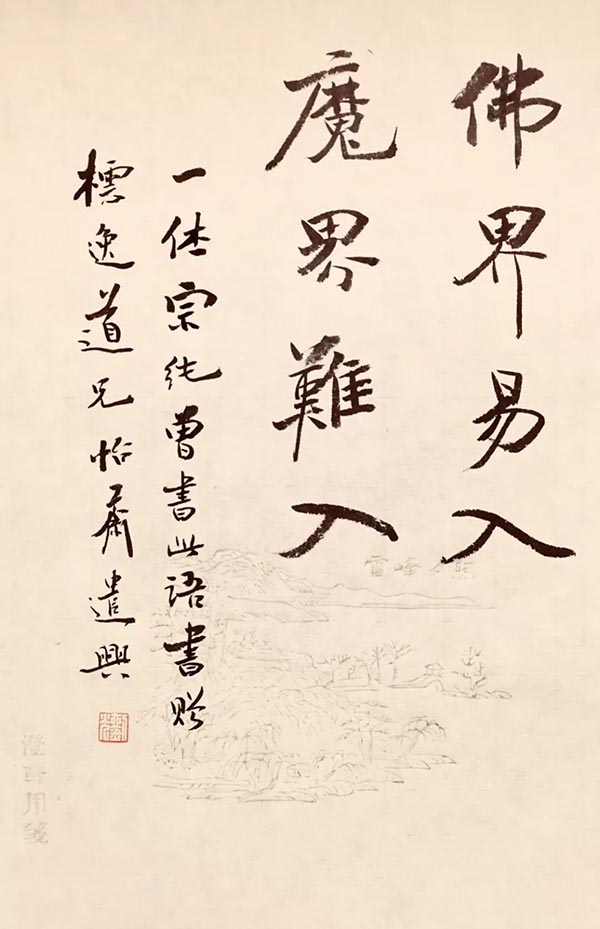 佛界易入
魔界難入
一休宗純曾書此語書贈
逸道兄怡齋遣興
雷峰夕照
澄軒用箋